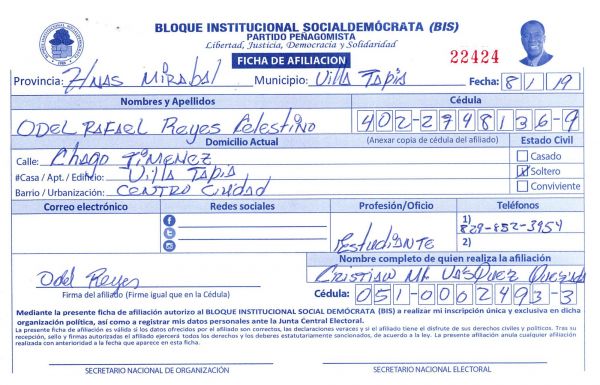 BLOQUE INSTITUCIONAL SOCIALDEMÓCRATA (BIS)
PARTIDO PEÑAGOMISTA
Libertad, Justicia, Democracia y Solidaridad
FICHA DE AFILIACION
22424
Provincia: Hnas Mirabal Municipio: Villa Tapia Fecha: 8/1/19
Nombres y Apellidos Cédula
Odel Rafael Reyes Celestino 402-2948136-9
Domicilio Actual (Anexar copia de cédula del afiliado) Estado Civil
Calle: Chago Jimenez Casado
#Casa / Apt. / Edificio: Villa Tapia X Soltero
Barrio / Urbanización: Centro Ciudad Conviviente
Correo electrónico Redes sociales Profesión/Oficio Teléfonos
1) 829-852-3954
Estudiante 2)
Nombre completo de quien realiza la afiliación
Odel Reyes Cristian Ml. Vasquez
Firma del afiliado (Firme igual que en la Cédula) Cédula: 051-0002493-3
Mediante la presente ficha de afiliación autorizo al BLOQUE INSTITUCIONAL SOCIAL DEMÓCRATA (BIS) a realizar mi inscripción única y exclusiva en dicha
organización política, así como a registrar mis datos personales ante la Junta Central Electoral.
La presente ficha de afiliación es válida si los datos ofrecidos por el afiliado son correctos, las declaraciones veraces y si el afiliado tiene el disfrute de sus derechos civiles y políticos. Tras su
recepción, sello y firmas autorizadas el afiliado ejercerá todos los derechos y los deberes estatutariamente sancionados, de acuerdo a la ley. La presente afiliación anula cualquier afiliación
realizada con anterioridad a la fecha que aparece en esta ficha.
SECRETARIO NACIONAL DE ORGANIZACIÓN SECRETARIO NACIONAL ELECTORAL